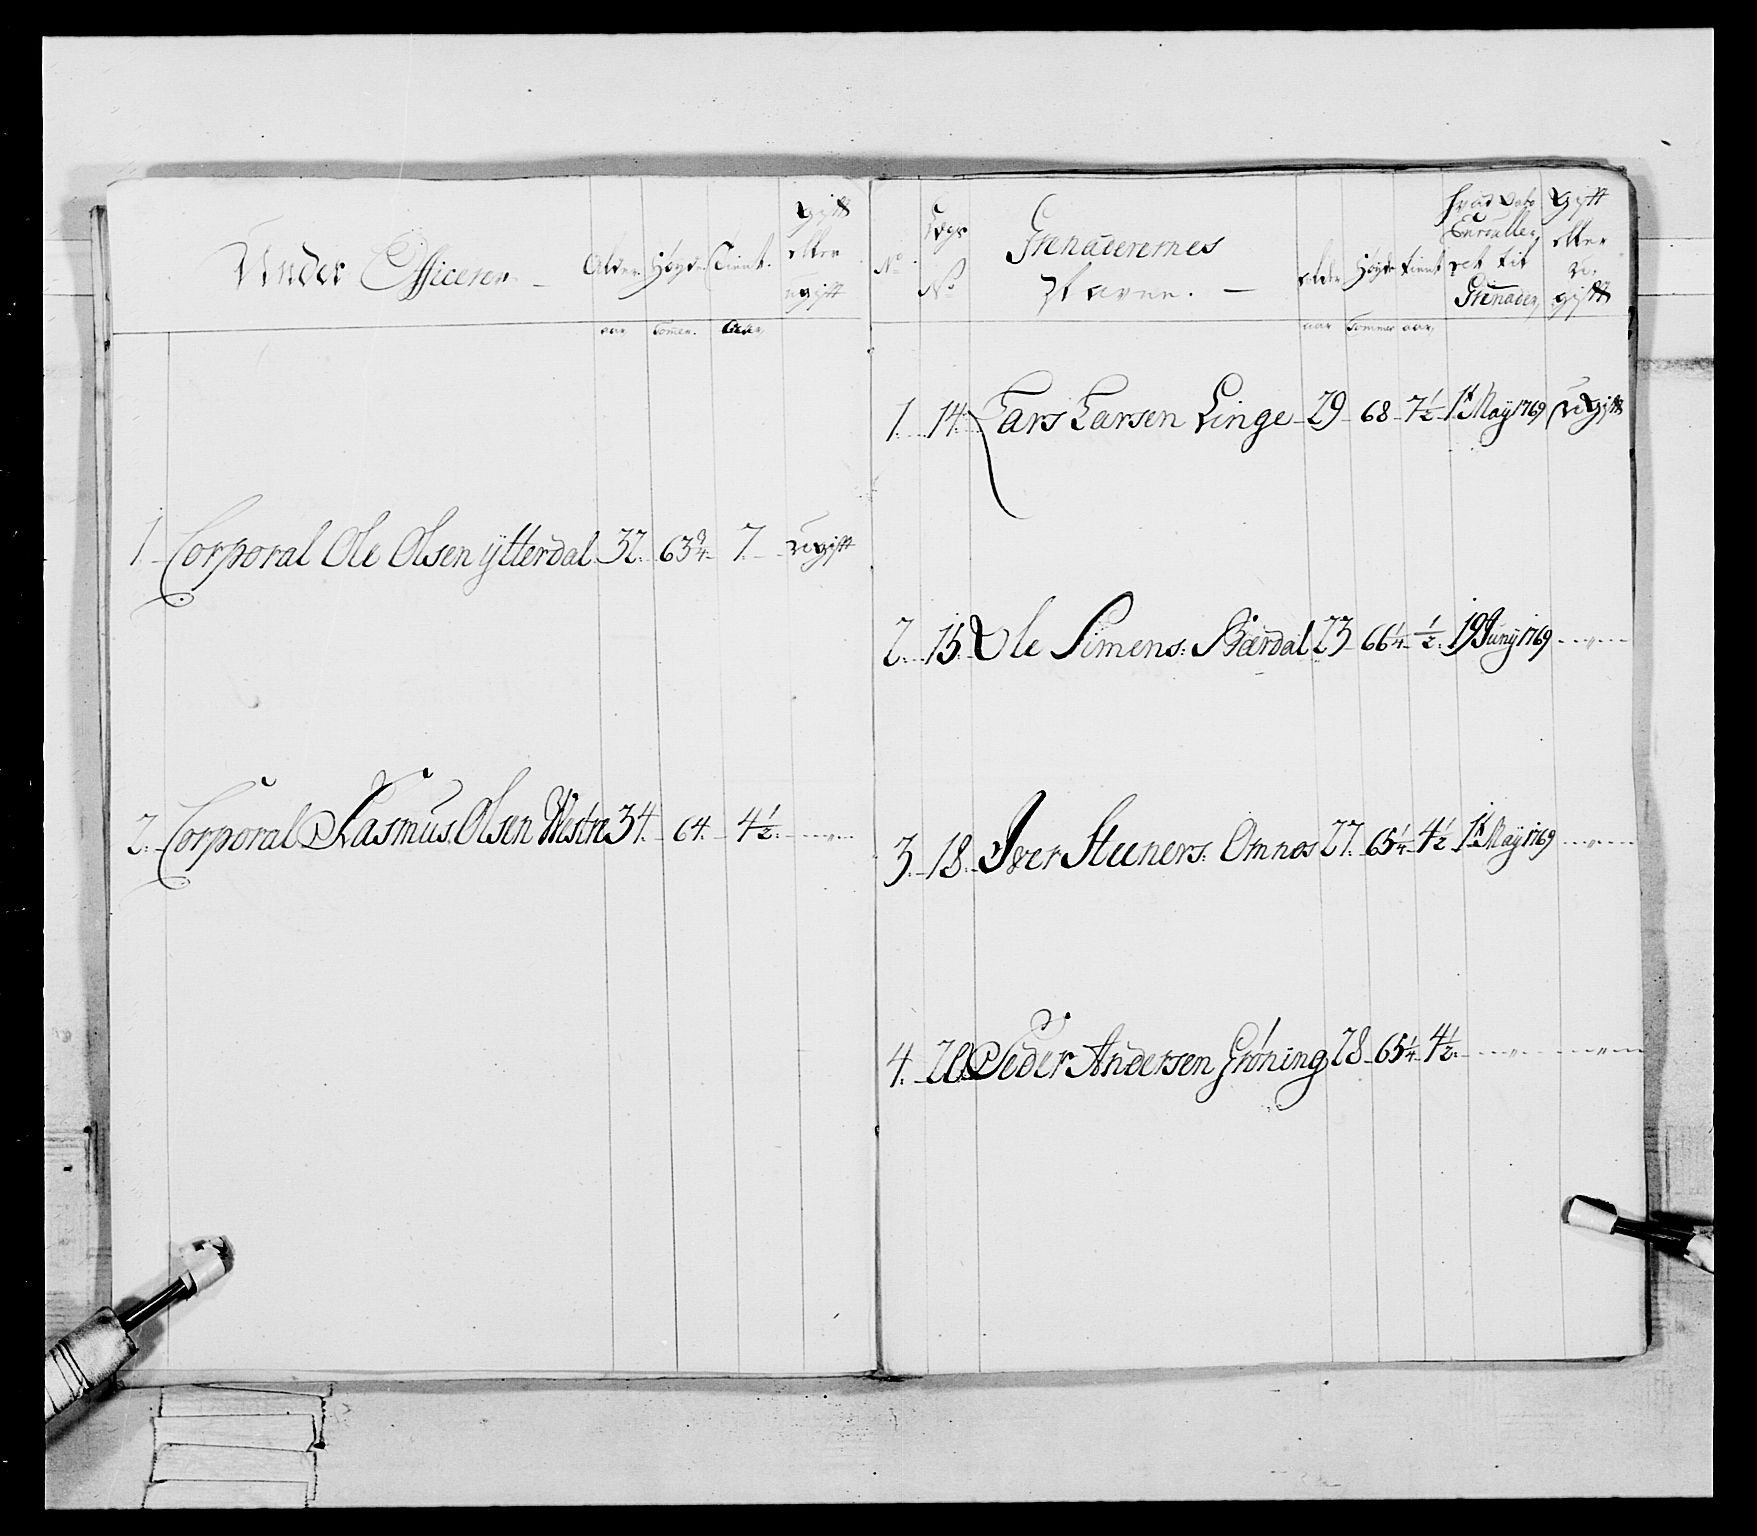 Under Officerer
Alder Høyde Tient
gift
eller
ugift
aar Tommer. aar
1 Corporal Ole Olsen ÿtterdal 32. 63¾ 7. ugift
2. Corporal Rasmus Olsen Westre 34. 64. 4½ "
No
Lægs
No
Grenaderernes
Navne.
alder Høyde tient
hvad Dato
Enroulle
ret til
Grenader
Gift
eller
u
gift
aar Tommer aar
1. 14. Lars Larsen Linge 29 68 7½ 1t Maÿ 1769 ugift
2. 15 Ole Simens: Kiærdal 23 66¼ ½ 19 Junÿ 1769 "
3. 18. Iver Steners: Omnos 27. 65¼ 4½ 1t Maÿ 1769 "
4. 20 Peder Andersen Grøning 28 65¼ 4½ " "